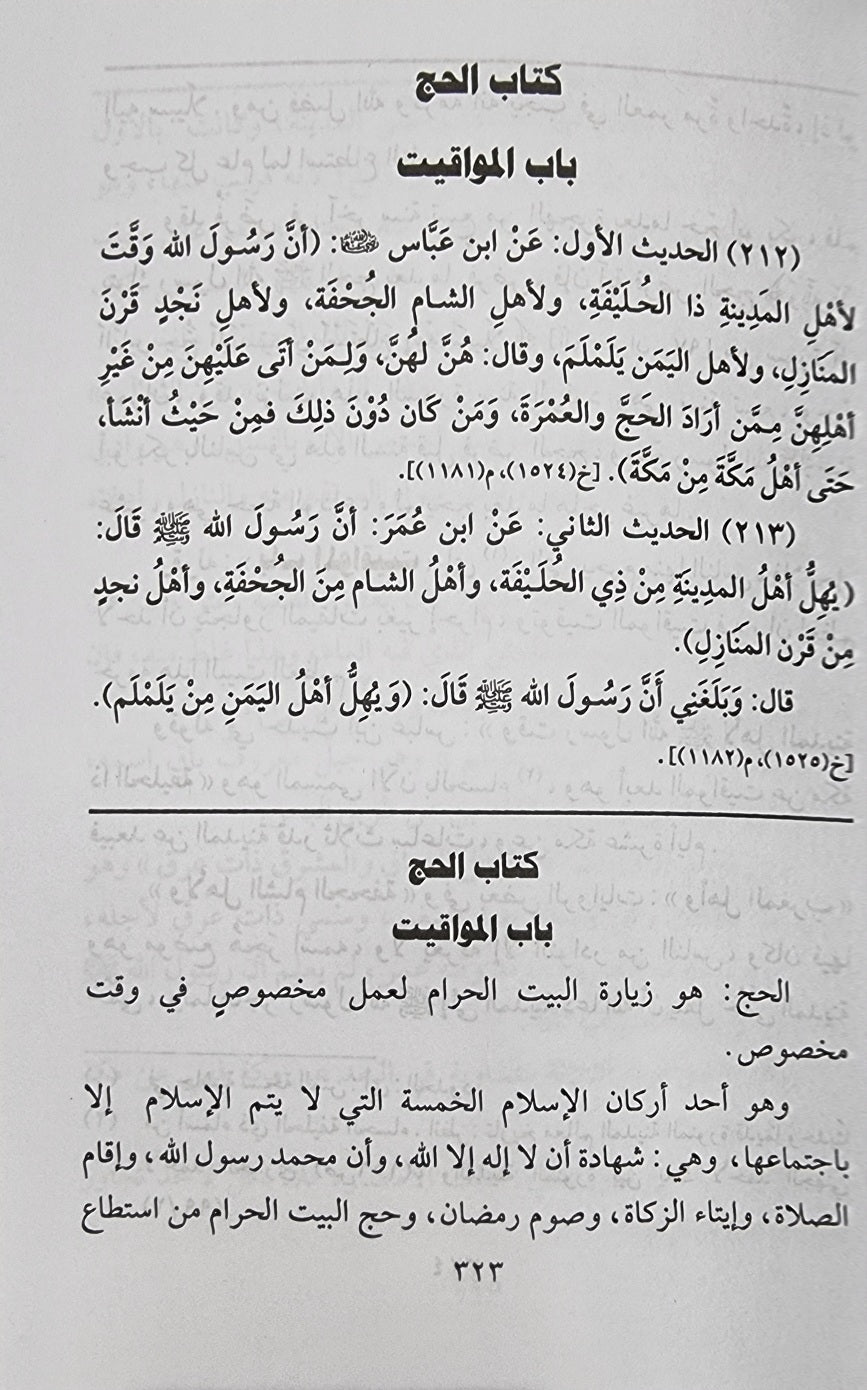 كتاب الحج
باب المواقيت
(٢١٢) الحديث الأول: عَنْ ابن عَبَّاس ﷺ: (أنَّ رَسُولَ الله وَقَّتَ
لأهْلِ المَدِينةِ ذا الحُلَيْفَةِ، ولأهلِ الشام الجُحْفَة، ولأهلِ نَجْدٍ قَرْنَ
المنَازِلِ، ولأهل اليَمَن يَلَمْلَمَ، وقال: هُنَّ لهُنَّ، وَلِمَنْ أتَى عَلَيْهِنَ مِنْ غَيْرِ
أهْلِهِنَّ مِمَّن أرَادَ الحَجَّ والعُمْرَةَ، وَمَنْ كَان دُوْنَ ذلِكَ فمِنْ حَيْثُ أنْشَأ،
حَتَى أهْلُ مَكَّةَ مِنْ مَكَّةَ). [خ(١٥٢٤)، م(١١٨١)].
(٢١٣) الحديث الثاني: عَنْ ابن عُمَرَ: أنَّ رَسُولَ الله ﷺ قَالَ:
(يُهِلُّ أهْلُ المدِينَةِ مِنْ ذِي الحُلَيْفَة، وأهْلُ الشام مِنَ الجُحْفَةِ، وأهْلُ نجدٍ
مِنْ قَرْن المنَازِلِ).
قال: وَبَلَغَنِي أَنَّ رَسُولَ الله ﷺ قَالَ: (وَيُهِلُّ أهْلُ اليَمَنِ مِنْ يَلَمْلَم).
[خ(١٥٢٥)، م(١١٨٢)].
كتاب الحج
باب المواقيت
الحج: هو زيارة البيت الحرام لعمل مخصوصٍ في وقت
مخصوص.
وهو أحد أركان الإسلام الخمسة التي لا يتم الإسلام إلا
باجتماعها، وهي: شهادة أن لا إله إلا الله، وأن محمد رسول الله، وإقام
الصلاة، وإيتاء الزكاة، وصوم رمضان، وحج البيت الحرام من استطاع
٣٢٣